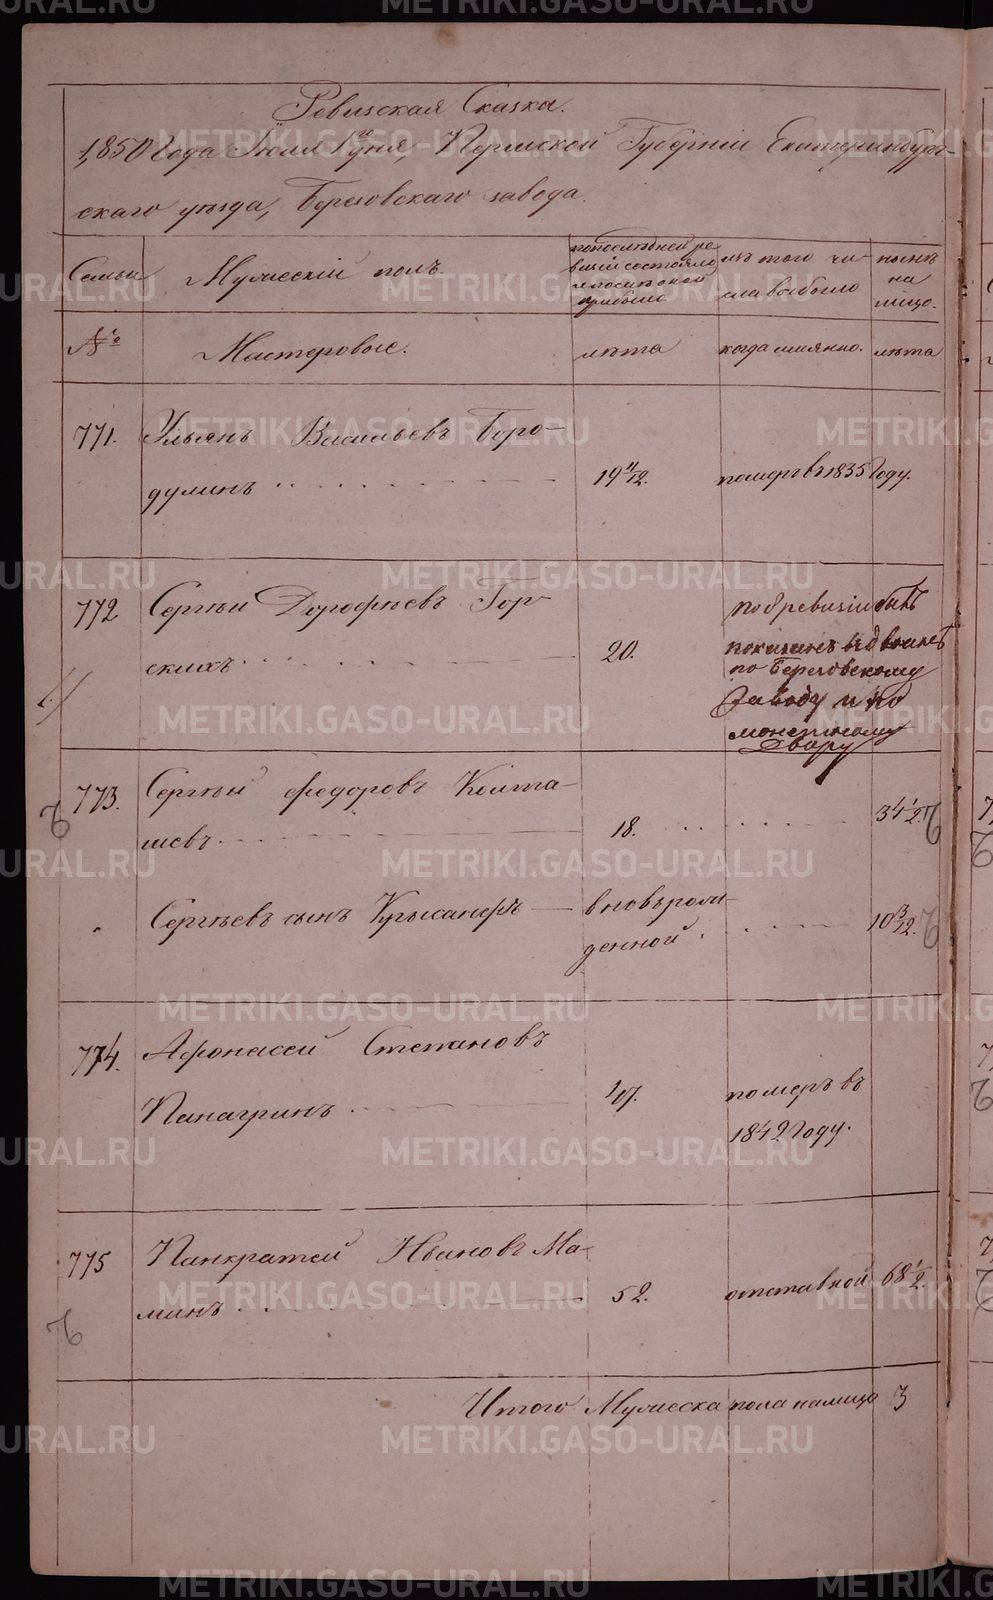 Ревизская Сказка.
1850 Года Июля 1го дня, Пермской Губернiи Екатеринбург-
скаго уѣзда, Березовскаго завода.
Семьи
Мужескiй полъ.
по последней ре
визiи состояло
и после оной
прибыло
изъ того чи-
сла выбыло
ныне
на
лицо.
№
Мастеровые.
лѣта
когда имянно.
лѣта
771.
Ульянъ Васильевъ Боро-
дулинъ
19 11/12.
померъ въ 1835 Году.
772
Сергѣй Дорофѣевъ Гор-
скихъ
20.
по 8 ревизiи бытъ
показанъ вдвойнѣ
по Березовскому
Заводу и по
монетному
Двору
773.
Сергѣй Федоровъ Колта-
шевъ
18.
34 1/2.
Сергѣевъ сынъ Крысанфъ
вновърож-
денной.
10 3/12.
774.
Афонасей Степановъ
Панагринъ
47.
померъ въ
1842 Году.
775
Панкратей Ивановъ Ма-
минъ
52.
отставной
68 1/2
Итого Мужеска пола налицо 3
METRIKI.GASO-URAL.RU